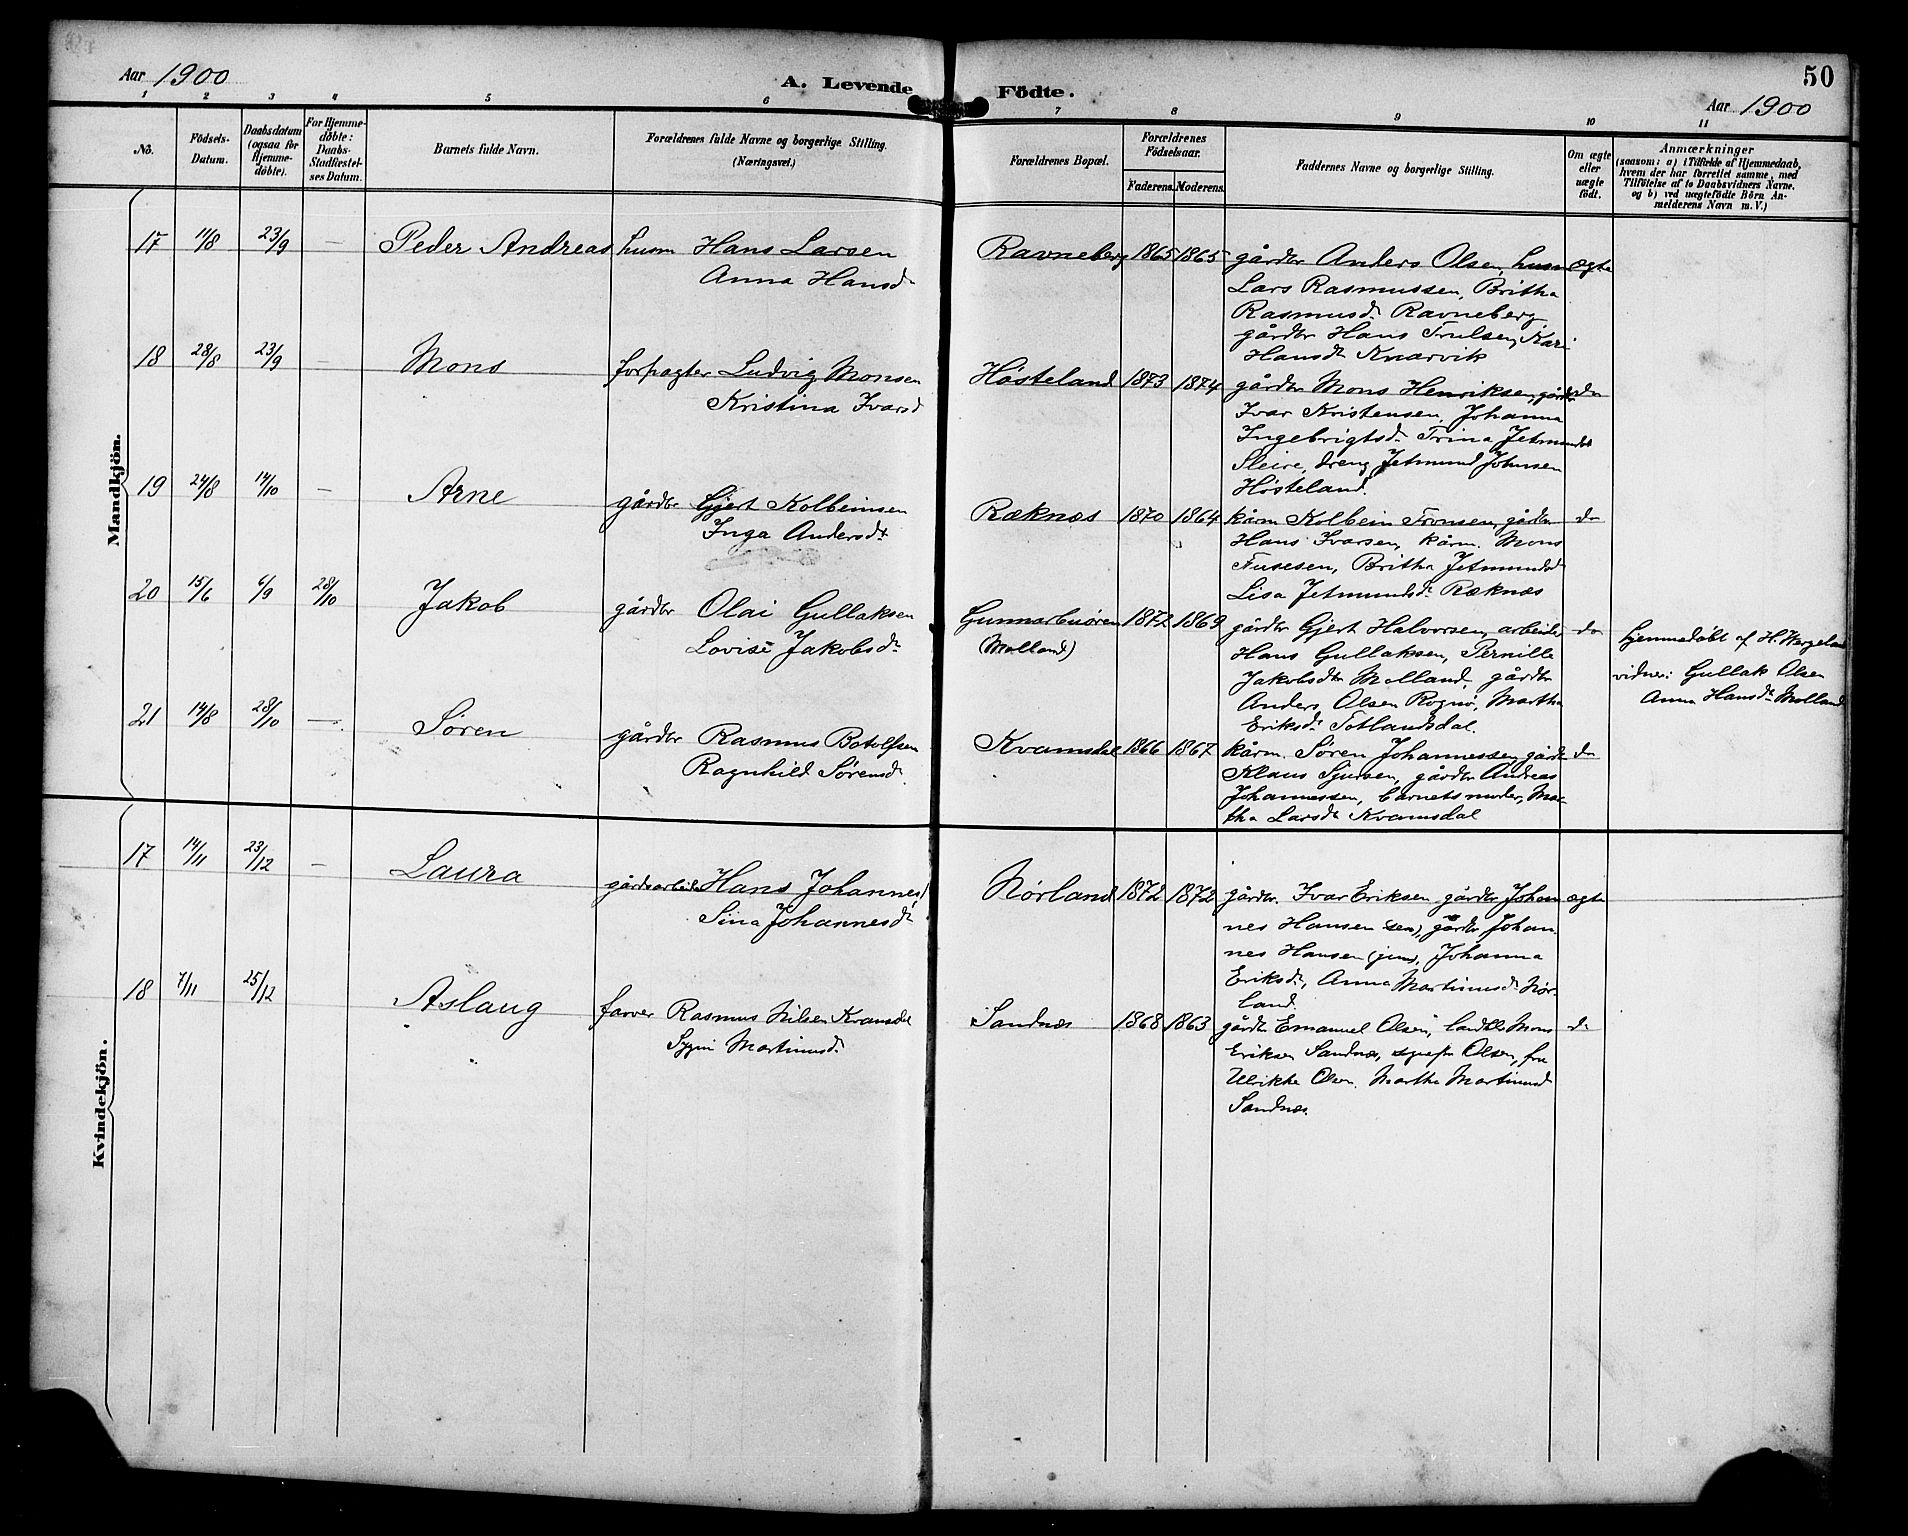 50
Aar 1900
A. Levende Födte.
Aar 1900
1 2 3 4 5 6 7 8 9 10 11
No.
Födsels-
Datum.
Daabsdatum
(ogsaa for
Hjemme-
döbte).
For Hjemme-
döbte:
Daabs-
Stadfæstel-
ses Datum.
Barnets fulde Navn.
Forældrenes fulde Navne og borgerlige Stilling.
(Næringsvei.)
Forældrenes Bopæl.
Forældrenes
Födselsaar.
Faderens. Moderens.
Faddernes Navne og borgerlige Stilling.
Om ægte
eller
uægte
födt.
Anmærkninger
(saasom: a) i Tilfælde af Hjemmedaab,
hvem der har forrettet samme, med
Tilföielse af to Daabsvidners Navne.
og b) ved uægtefödte Börn An-
melderens Navn m. V.)
Mandkjön.
17 11/8 23/9 — Peder Andreas husm Hans Larsen
Anna Hansd
Ravneberg 1865 1865
gårdbr Anders Olsen, husm ægte
Lars Rasmussen, Britha
Rasmusd. Ravneberg
gårdbr Hans Trulsen, Kari
Hansdt Knarvik
18 28/8 23/9 — Mons forpagter Ludvig Monsen
Kristina Ivarsd
Hösteland 1873 1874
gårdbr Mons Henriksen, gårdbr do
Ivar Kristensen, Johanna
Ingebrigtsd. Trina Jetmundsd
Sleire, dreng Jetmund Johnsen
Hösteland.
19 24/8 14/10 — Arne gårdbr Gjert Kolbeinsen
Inga Andersdt
Ræknæs 1870 1864
kårm Kolbein Tronsen, gårdbr do
Hans Ivarsen, kårm. Mons
Fusesen, Britha Jetmundsd
Lisa Jetmundsd. Ræknæs
20 15/6 6/9 28/10 Jakob gårdbr Olai Gullaksen
Lovise Jakobsd.
Gunnarbuören 1872 1869
(Molland)
gårdbr Gjert Halvorsen, arbeider do
Hans Gullaksen, Pernille
Jakobsdtr Molland, gårdbr
Anders Olsen Rognö, Martha
Eriksd. Totlandsdal.
hjemmedöbt af H. Wergeland
vidner: Gullak Olsen
Anna Hansdt Molland
21 14/8 28/10 — Sören gårdbr Rasmus Botolfsen
Ragnhild Sörensd.
Kvamsdal 1866 1867
kårm. Sören Johannessen, gårdb do
Klaus Sjursen, gårdbr Andreas
Johannessen, barnets moder, Mar-
tha Larsdt Kvamsdal
Kvindekjön.
17 14/11 23/12 — Laura gårdsarbeider Hans Johannes
Sina Johannesdt
Nörland 1872 1872
gårdbr. Ivar Eriksen, gårdbr Johan ægte
nes Hansen (sen), gårdbr, Johan
nes Hansen (jun), Johanna
Eriksdt, Anna Martinusdt Nör-
land.
18 7/11 25/12 Aslaug farver Rasmus Nilsen Kvamsdal
Martinusd.
Sandnæs 1868 1863
gårdb. Emanuel Olsen, landh. Mons do
Eriksen Sandnæs, Olsen, fru
Ulrikke Olsen. Martha Martinusd
Sandnæs.